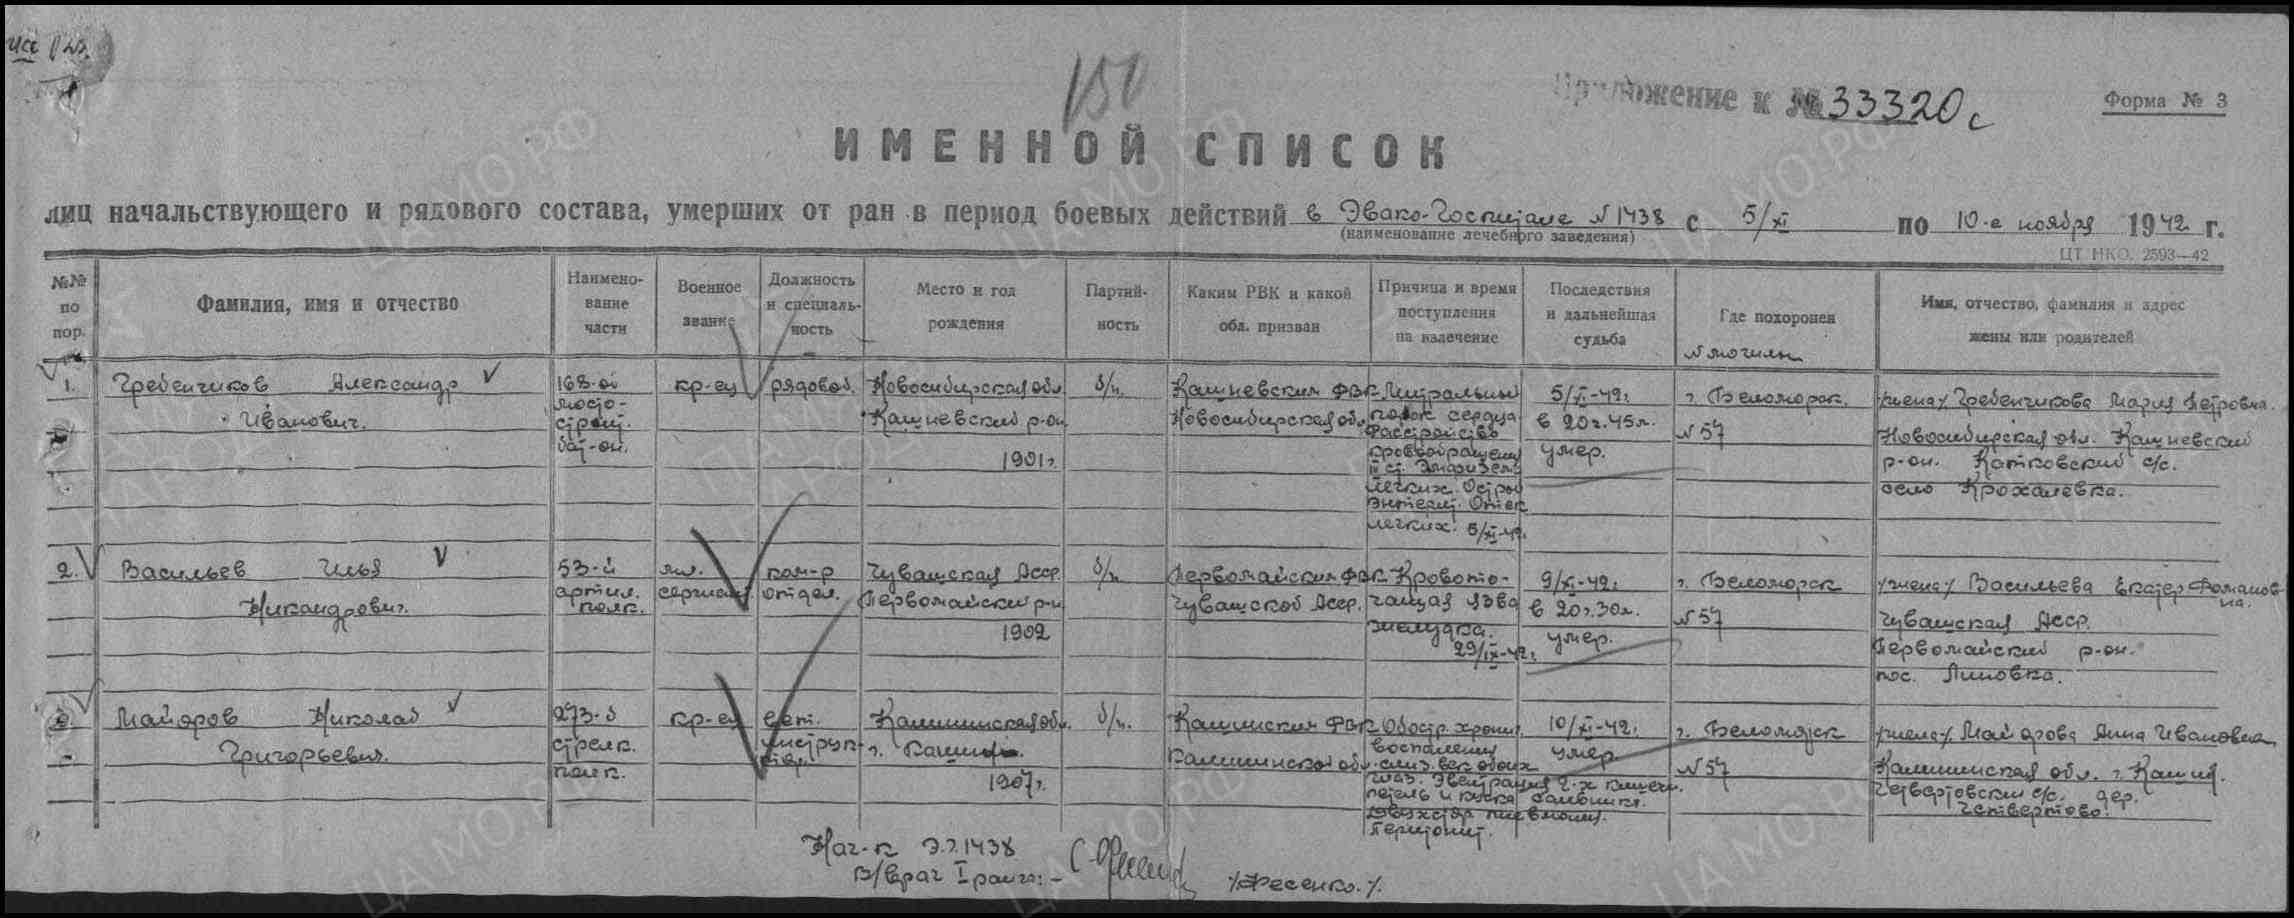 150
Приложение к № 33320с
Форма № 3
ИМЕННОЙ СПИСОК
лиц начальствующего и рядового состава, умерших от ран в период боевых действий в Эвако-Госпитале №1438 с 5/XI по 10-е ноября 1942 г.
(наименование лечебного заведения)
ЦТ НКО. 2593—42
№№ по пор.
Фамилия, имя и отчество
Наимено-
вание
части
Военное
звание
Должность
и специаль-
ность
Место и год
рождения
Партий-
ность
Каким РВК и какой
обл. призван
Причина и время
поступления
на излечение
Последствия
и дальнейшая
судьба
Где похоронен
№ могилы
Имя, отчество, фамилия и адрес
жены или родителей
1.
Гребенчиков Александр
Иванович.
168-ой
мосто-
строит.
бат-он.
кр-ец
рядовой.
Новосибирская обл
Кашневский р-он
1901г.
б/п.
Кашневским РВК
Новосибирская обл.
Митральный
порок сердца
Расстройство
кровообращения
III ст. Эмфизема
легких. Острый
энтерит. Отек
легких. 5/XI-42г.
5/XI-42г.
в 20ч.45м.
умер.
г. Беломорск.
№57
/жена/ Гребенчикова Мария Петровна.
Новосибирская обл. Кашневский
р-он. Катковский с/с.
село Крохалевка.
2.
Васильев Илья
Никандрович.
53-й
артил.
полк.
мл.
сержант
ком-р
отдел.
Чувашская Асср.
Первомайский р-н
1902
б/п
Первомайским РВК
Чувашской Асср.
Кровото-
чащая язва
желудка.
29/IX-42г.
9/XI-42г.
в 20ч.30м.
умер.
г. Беломорск
№57
/жена/ Васильева Екатер Романов
на.
Чувашская Асср.
Первомайский р-он.
пос. Липовка.
3.
Майоров Николай
Григорьевич.
273-й
стрелк.
полк.
кр-ец
вет.
инструк-
тор
Калининская обл.
г. Кашин.
1907г.
б/п.
Кашинским РВК
Калининской обл.
Обостр. хронич.
воспаления
слиз. век обоих
глаз. Эвентрация 2-х кишечн.
петель и куска сальника.
Двухстор пневмония.
Перитонит.
10/XI-42г.
умер
г. Беломорск
№57
/жена/ Майорова Анна Ивановна
Калининская обл. г. Кашин.
Четвертовский с/с. дер.
Четвертово.
Нач-к Э.Г.1438
В/врач I ранга:-
/Фесенко./
ЦАМО.РФ